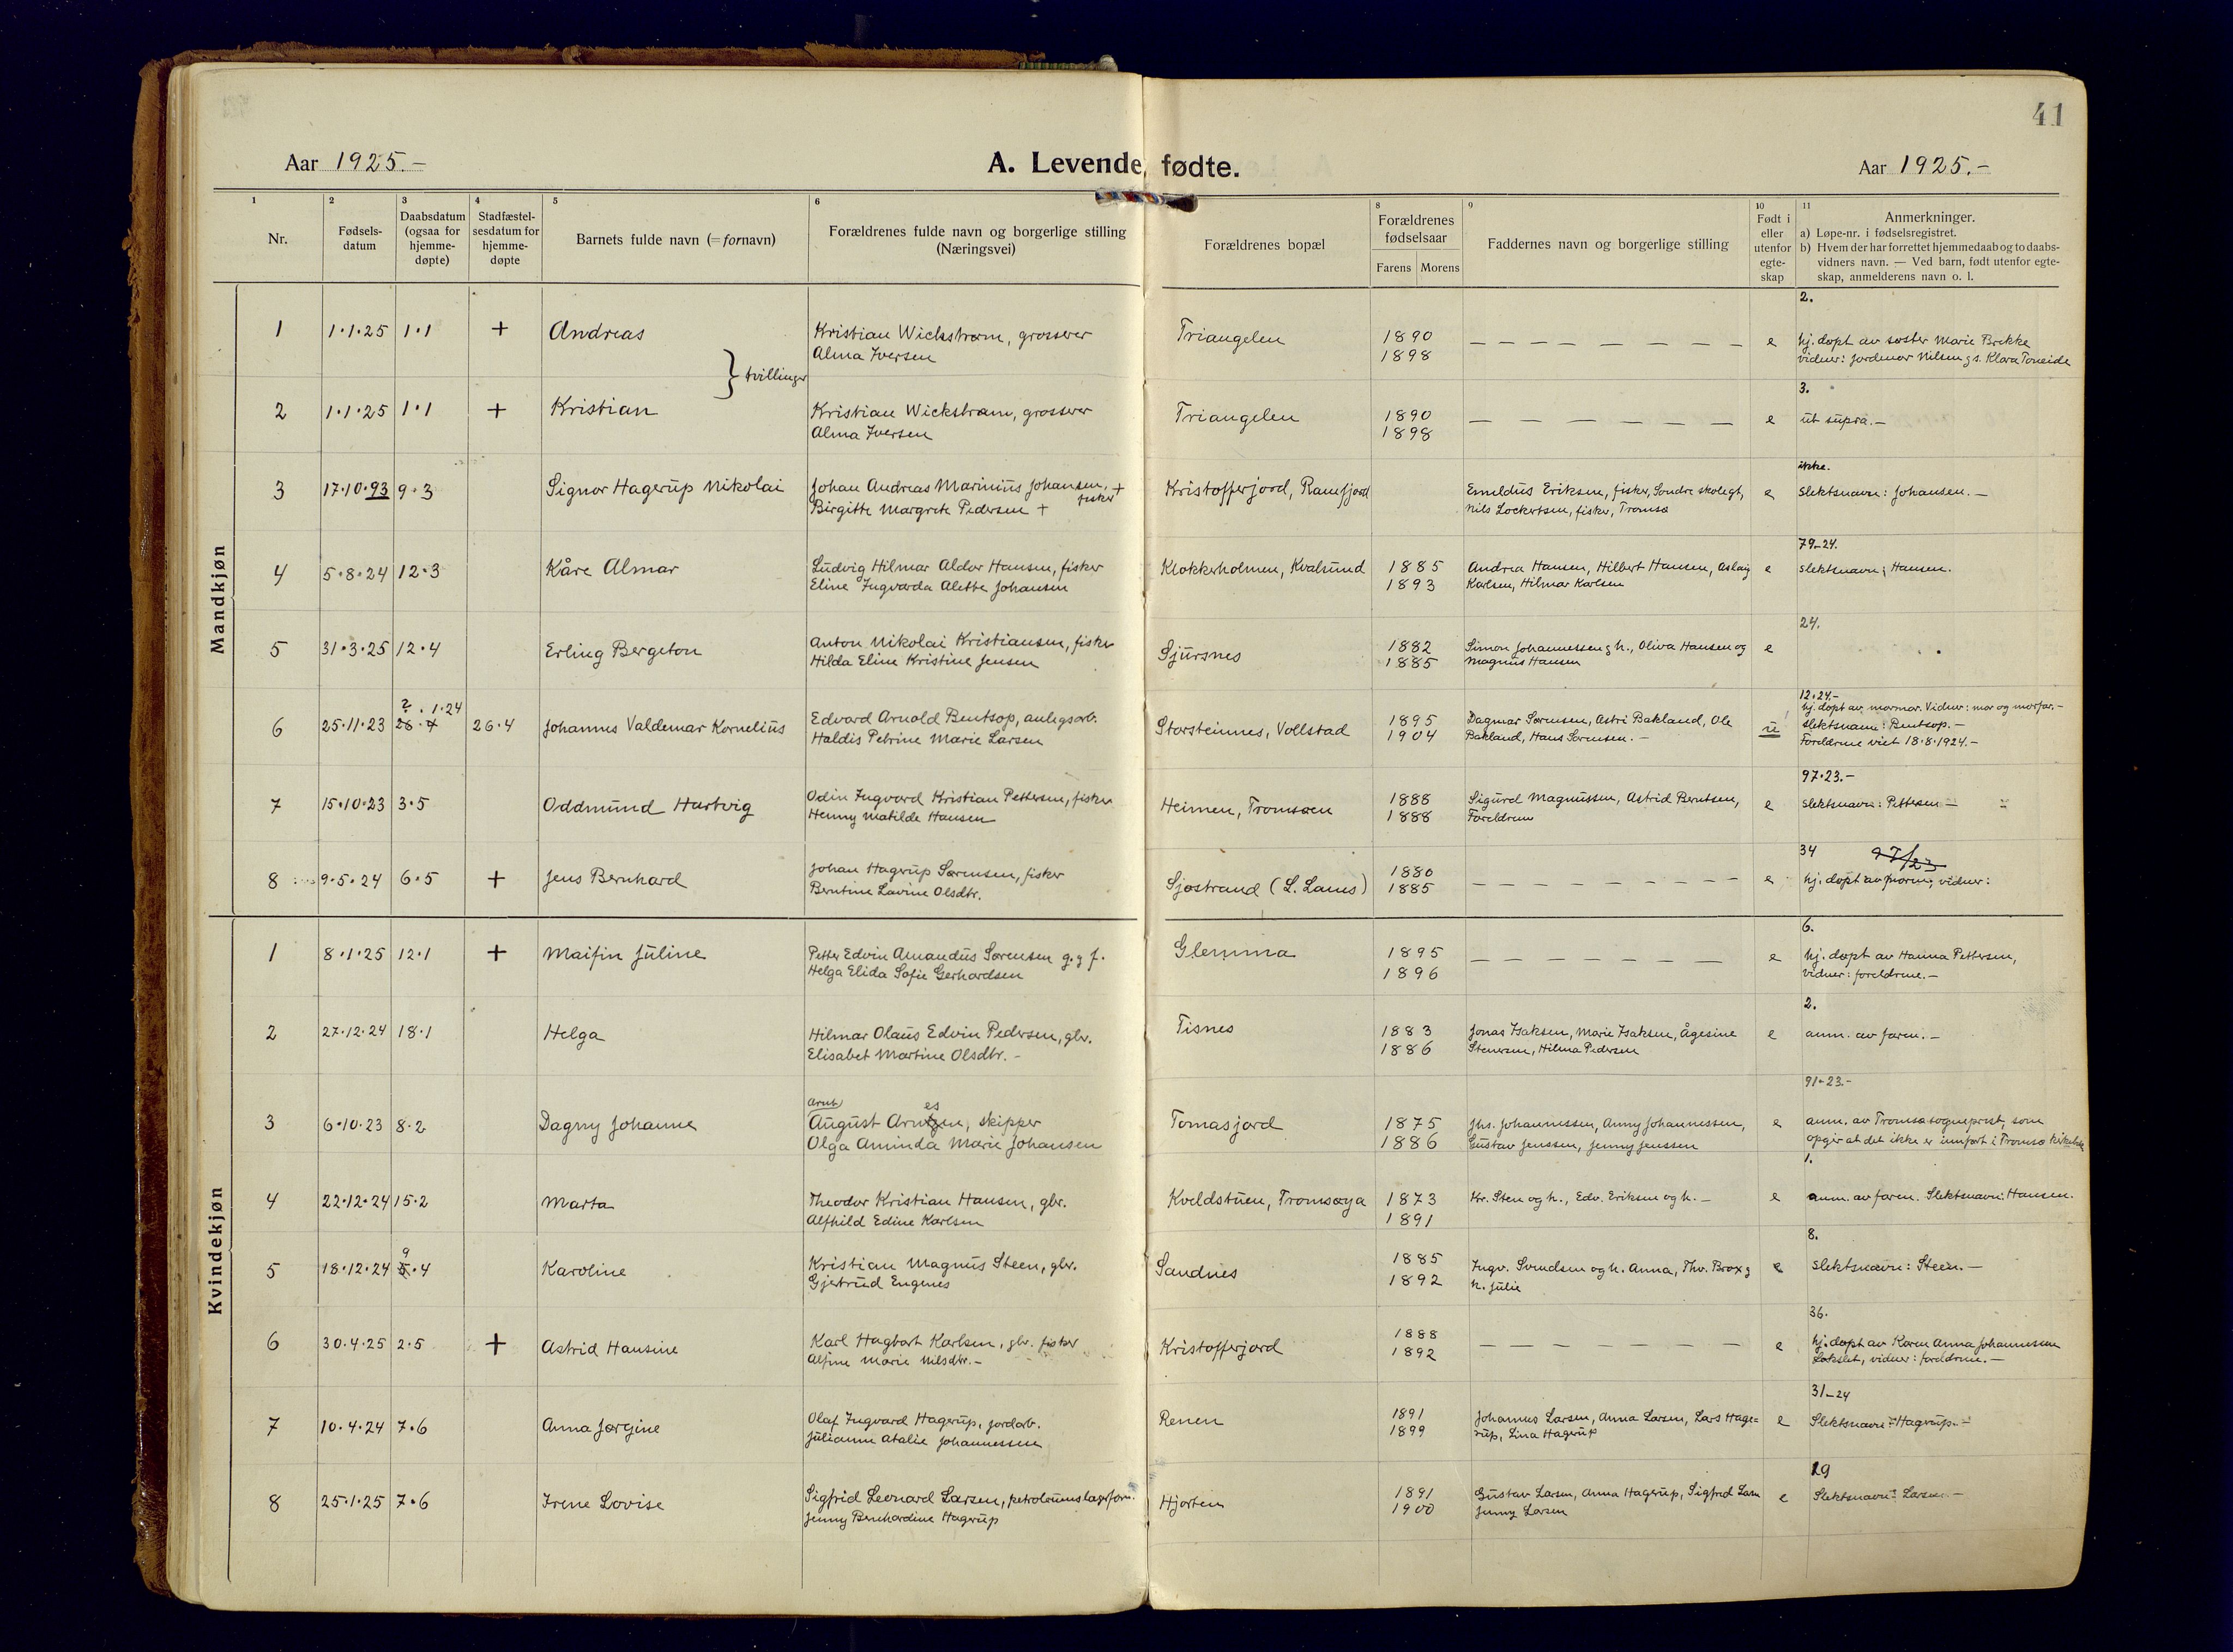 41
Aar 1925.-
A. Levende fødte.
Aar 1925.-
1 Nr.
2 Fødsels-datum
3 Daabsdatum (ogsaa for hjemme-døpte)
4 Stadfæstel-sesdatum for hjemme-døpte
5 Barnets fulde navn (=fornavn)
6 Forældrenes fulde navn og borgerlige stilling (Næringsvei)
Forældrenes bopæl
8 Forældrenes fødselsaar Farens Morens
9 Faddernes navn og borgerlige stilling
10 Født i eller utenfor egte-skap
11 Anmerkninger.
a) Løpe-nr. i fødselsregistret.
b) Hvem der har forrettet hjemmedaab og to daabs-
vidners navn. — Ved barn, født utenfor egte-
skap, anmelderens navn o. l.
Mandkjøn
2.
1 1.1.25 1.1 + Andreas Kristian Wickstrøm, grosserer Triangelen 1890 — — — — — — — — e hj. døpt av søster Marie Brekke
Alma Iversen 1898 vidner: jordmor Nilsen g s. Klara Toneide
} tvillinger
3.
2 1.1.25 1.1 + Kristian Kristian Wickstrøm, grosserer Triangelen 1890 — — — — — — — e ut supra.-
Alma Iversen 1898
ikke.
3 17.10.93 9.3 Signor Hagerup Nikolai Johan Andreas Marinius Johansen, + fisker Kristofferjord, Ramfjord Emeldus Eriksen, fisker, Søndre skolegt, e Slektsnavn: Johansen.-
Birgitte Margrete Pedersen + Nils Lockertsen, fisker, Tromsø
79-24.
4 5.8.24 12.3 Kåre Almar Ludvig Hilmar Aldor Hansen, fisker Klokkerholmen, Kvalsund 1885 Andrea Hansen, Hilbert Hansen, Aslaug e Slektsnavn; Hansen.
Eline Ingvarda Alette Johansen 1893 Karlsen, Hilmar Karlsen
24.
5 31.3.25 12.4 Erling Bergeton Anton Nikolai Kristiansen, fisker Sjursnes 1882 Simon Johannessen g h., Oliva Hansen og e
Hilda Eline Kristine Jensen 1885 Magnus Hansen
12.24.-
? . 1.24 hj. døpt av mormor. Vidner: mor og morfar.-
6 25.11.23 28.4 26.4 Johannes Valdemar Kornelius Edvard Arnold Bentsop, anlegsarb. Storsteinnes, Vollstad 1895 Dagmar Sørensen, Astri Bakland, Ole u Slektsnavn: Bentsop.-
Haldis Petrine Marie Larsen 1904 Bakland, Hans Sørensen.- Foreldrene viet 18.8.1924.-
97.23.-
7 15.10.23 3.5 Oddmund Hartvig Odin Ingvard Kristian Pettersen, fisker Heimen, Tromsøen 1888 Sigurd Magnussen, Astrid Berntsen, e Slektsnavn: Pettersen -
Henny Matilde Hansen 1888 Foreldrene
34 97/23
8 9.5.24 6.5 + Jens Bernhard Johan Hagerup Sørensen, fisker Sjøstrand (L. Lanes) 1880 — — — — — — — — e hj. døpt av moren; vidner:
Berntine Lavine Olsdtr. 1885
Kvindekjøn
6.
1 8.1.25 12.1 + Maifin Juline Petter Edvin Amandus Sørensen g. g f. Glemma 1895 — — — — — — — e hj. døpt av Hanna Pettersen,
Helga Elida Sofie Gerhardsen 1896 vidner: foreldrene.-
2.
2 27.12.24 18.1 Helga Hilmar Olaus Edvin Pedersen, gbr. Tisnes 1883 Jonas Isaksen, Marie Isaksen, Ågesine e anm. av faren.-
Elisabet Martine Olsdtr.- 1886 Stenersen, Hilma Pedersen
91-23.-
Arnt es
3 6.10.23 8.2 Dagny Johanne August Arntzen, skipper Tomasjord 1875 Jhs. Johannessen, Anny Johannessen, e anm. av Tromsø sogneprest, som
Olga Aminda Marie Johansen 1886 Gustav Jenssen, Jenny Jenssen opgir at det ikke er innført i Tromsø kirkebok
1.
4 22.12.24 15.2 Marta Theodor Kristian Hansen, gbr. Kveldstuen, Tromsøya 1873 Kr. Sten og h., Edv. Eriksen og h.- e anm. av faren. Slektsnavn: Hansen.
Alfhild Edine Karlsen 1891
8.
9
5 18.12.24 5.4 Karoline Kristian Magnus Steen, gbr. Sandnes 1885 Ingv. Svendsen og h. Anna, Thv. Brox g e Slektsnavn: Steen.-
Gjertrud Engenes 1892 h. Julie
36.
6 30.4.25 2.5 + Astrid Hansine Karl Hagbart Karlsen, gbr. fisker Kristofferjord 1888 — — — — — — — e hj. døpt av Karen Anna Johannessen
Alfine Marie Nilsdtr.- 1892 Lakslet, vidner: foreldrene.-
31-24
7 10.4.24 7.6 Anna Jørgine Olaf Ingvard Hagerup, jordarb. Renen 1891 Johannes Larsen, Anna Larsen, Lars Hage= e Slektsnavn: Hagerup.-
Julianne Atalie Johannessen 1899 rup, Lina Hagerup
29
8 25.1.25 7.6 Irene Lovise Sigfrid Leonard Larsen, petroleumslagerform. Hjorten 1891 Gustav Larsen, Anna Hagerup, Sigfred Larsen e Slektsnavn: Larsen-
Jenny Bernhardine Hagerup 1900 Jenny Larsen